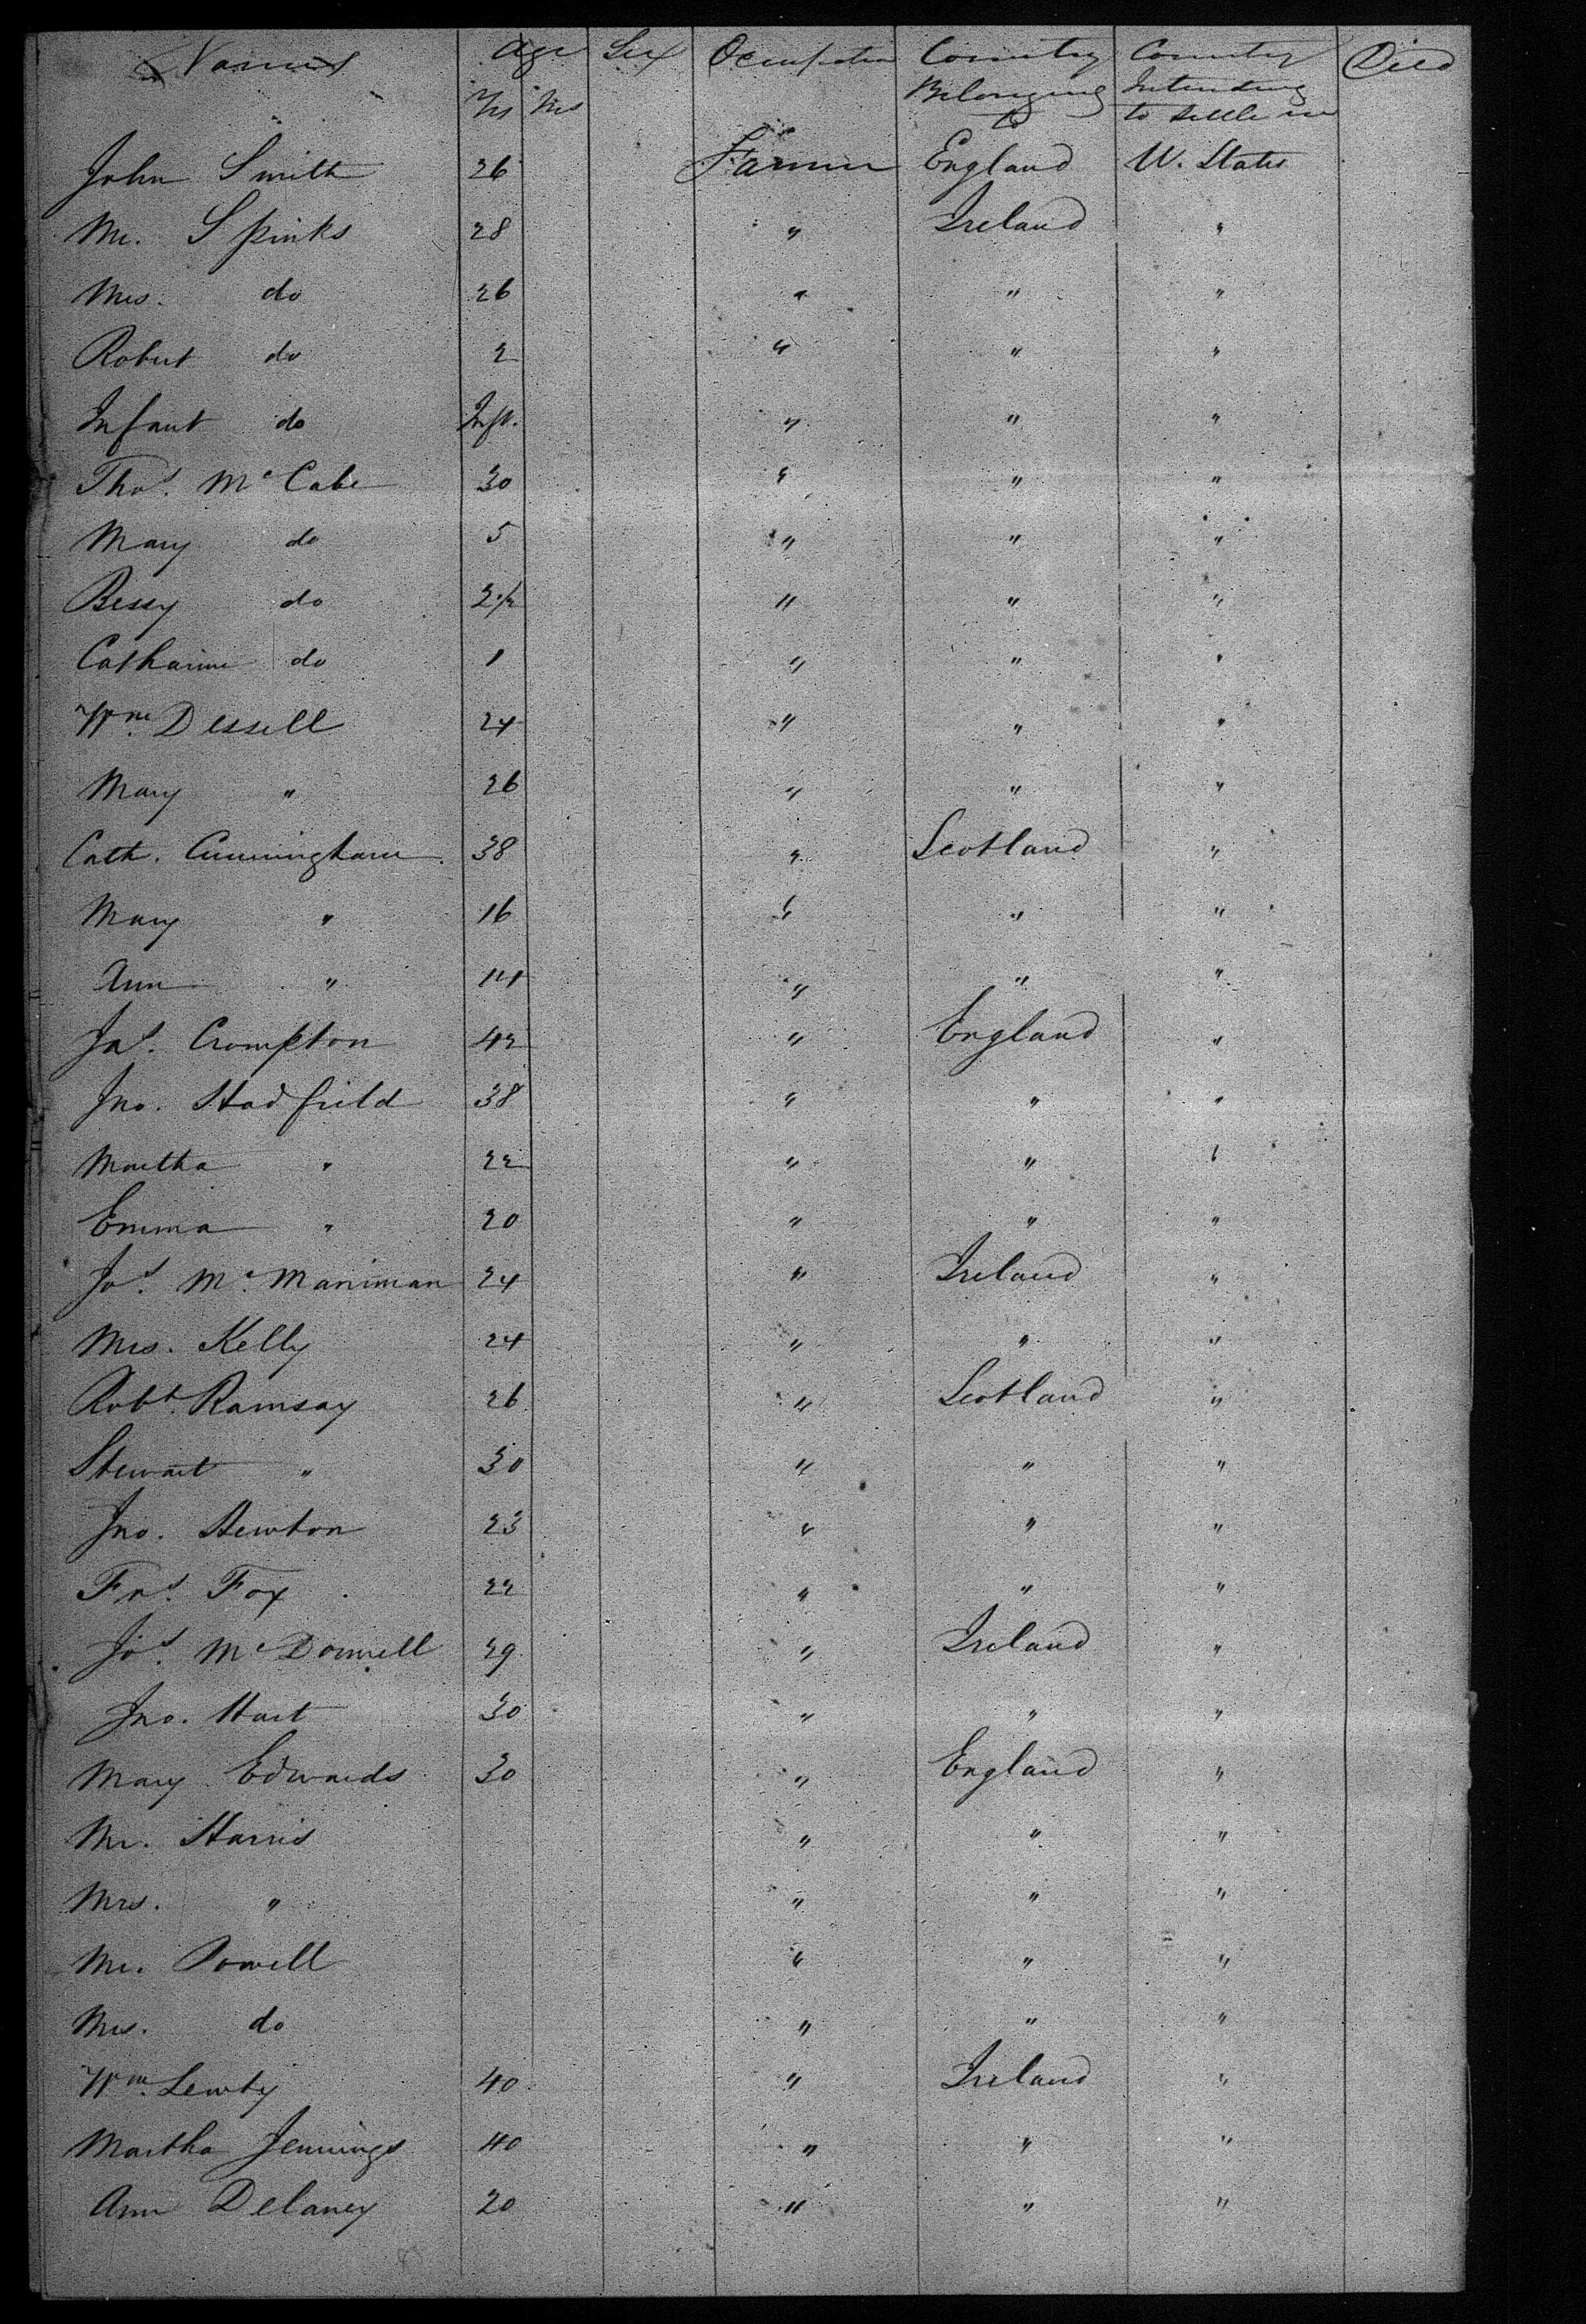 Names Age Sex Occupation Country Country Died
Yrs Ms Belonging Intending
to to Settle in
John Smith 26 Farmer England U. States
Mr. Spinks 28 " Ireland "
Mrs. do 26 " " "
Robert do 2 " " "
Infant do Inft. " " "
Thos. McCabe 30 " " "
Mary do 5 " " "
Bessy do 2 1/2 " " "
Catharine do 1 " " "
Wm. Dessell 24 " " "
Mary " 26 " " "
Cath. Cunningham 38 " Scotland "
Mary " 16 " " "
Ann " 14 " " "
Jas. Crompton 42 " England "
Jno. Hadfield 38 " " "
Martha " 22 " " "
Emma " 20 " " "
Jos. McManiman 24 " Ireland "
Mrs. Kelly 24 " " "
Robt. Ramsay 26 " Scotland "
Stewart " 30 " " "
Jno. Hewton 23 " " "
Frs. Fox 22 " " "
Jos. McDonnell 29 " Ireland "
Jno. Hart 30 " " "
Mary Edwards 30 " England "
Mr. Harris " " "
Mrs. " " " "
Mr. Powell " " "
Mrs. do " " "
Wm. Lewty 40 " Ireland "
Martha Jennings 40 " " "
Ann Delaney 20 " " "